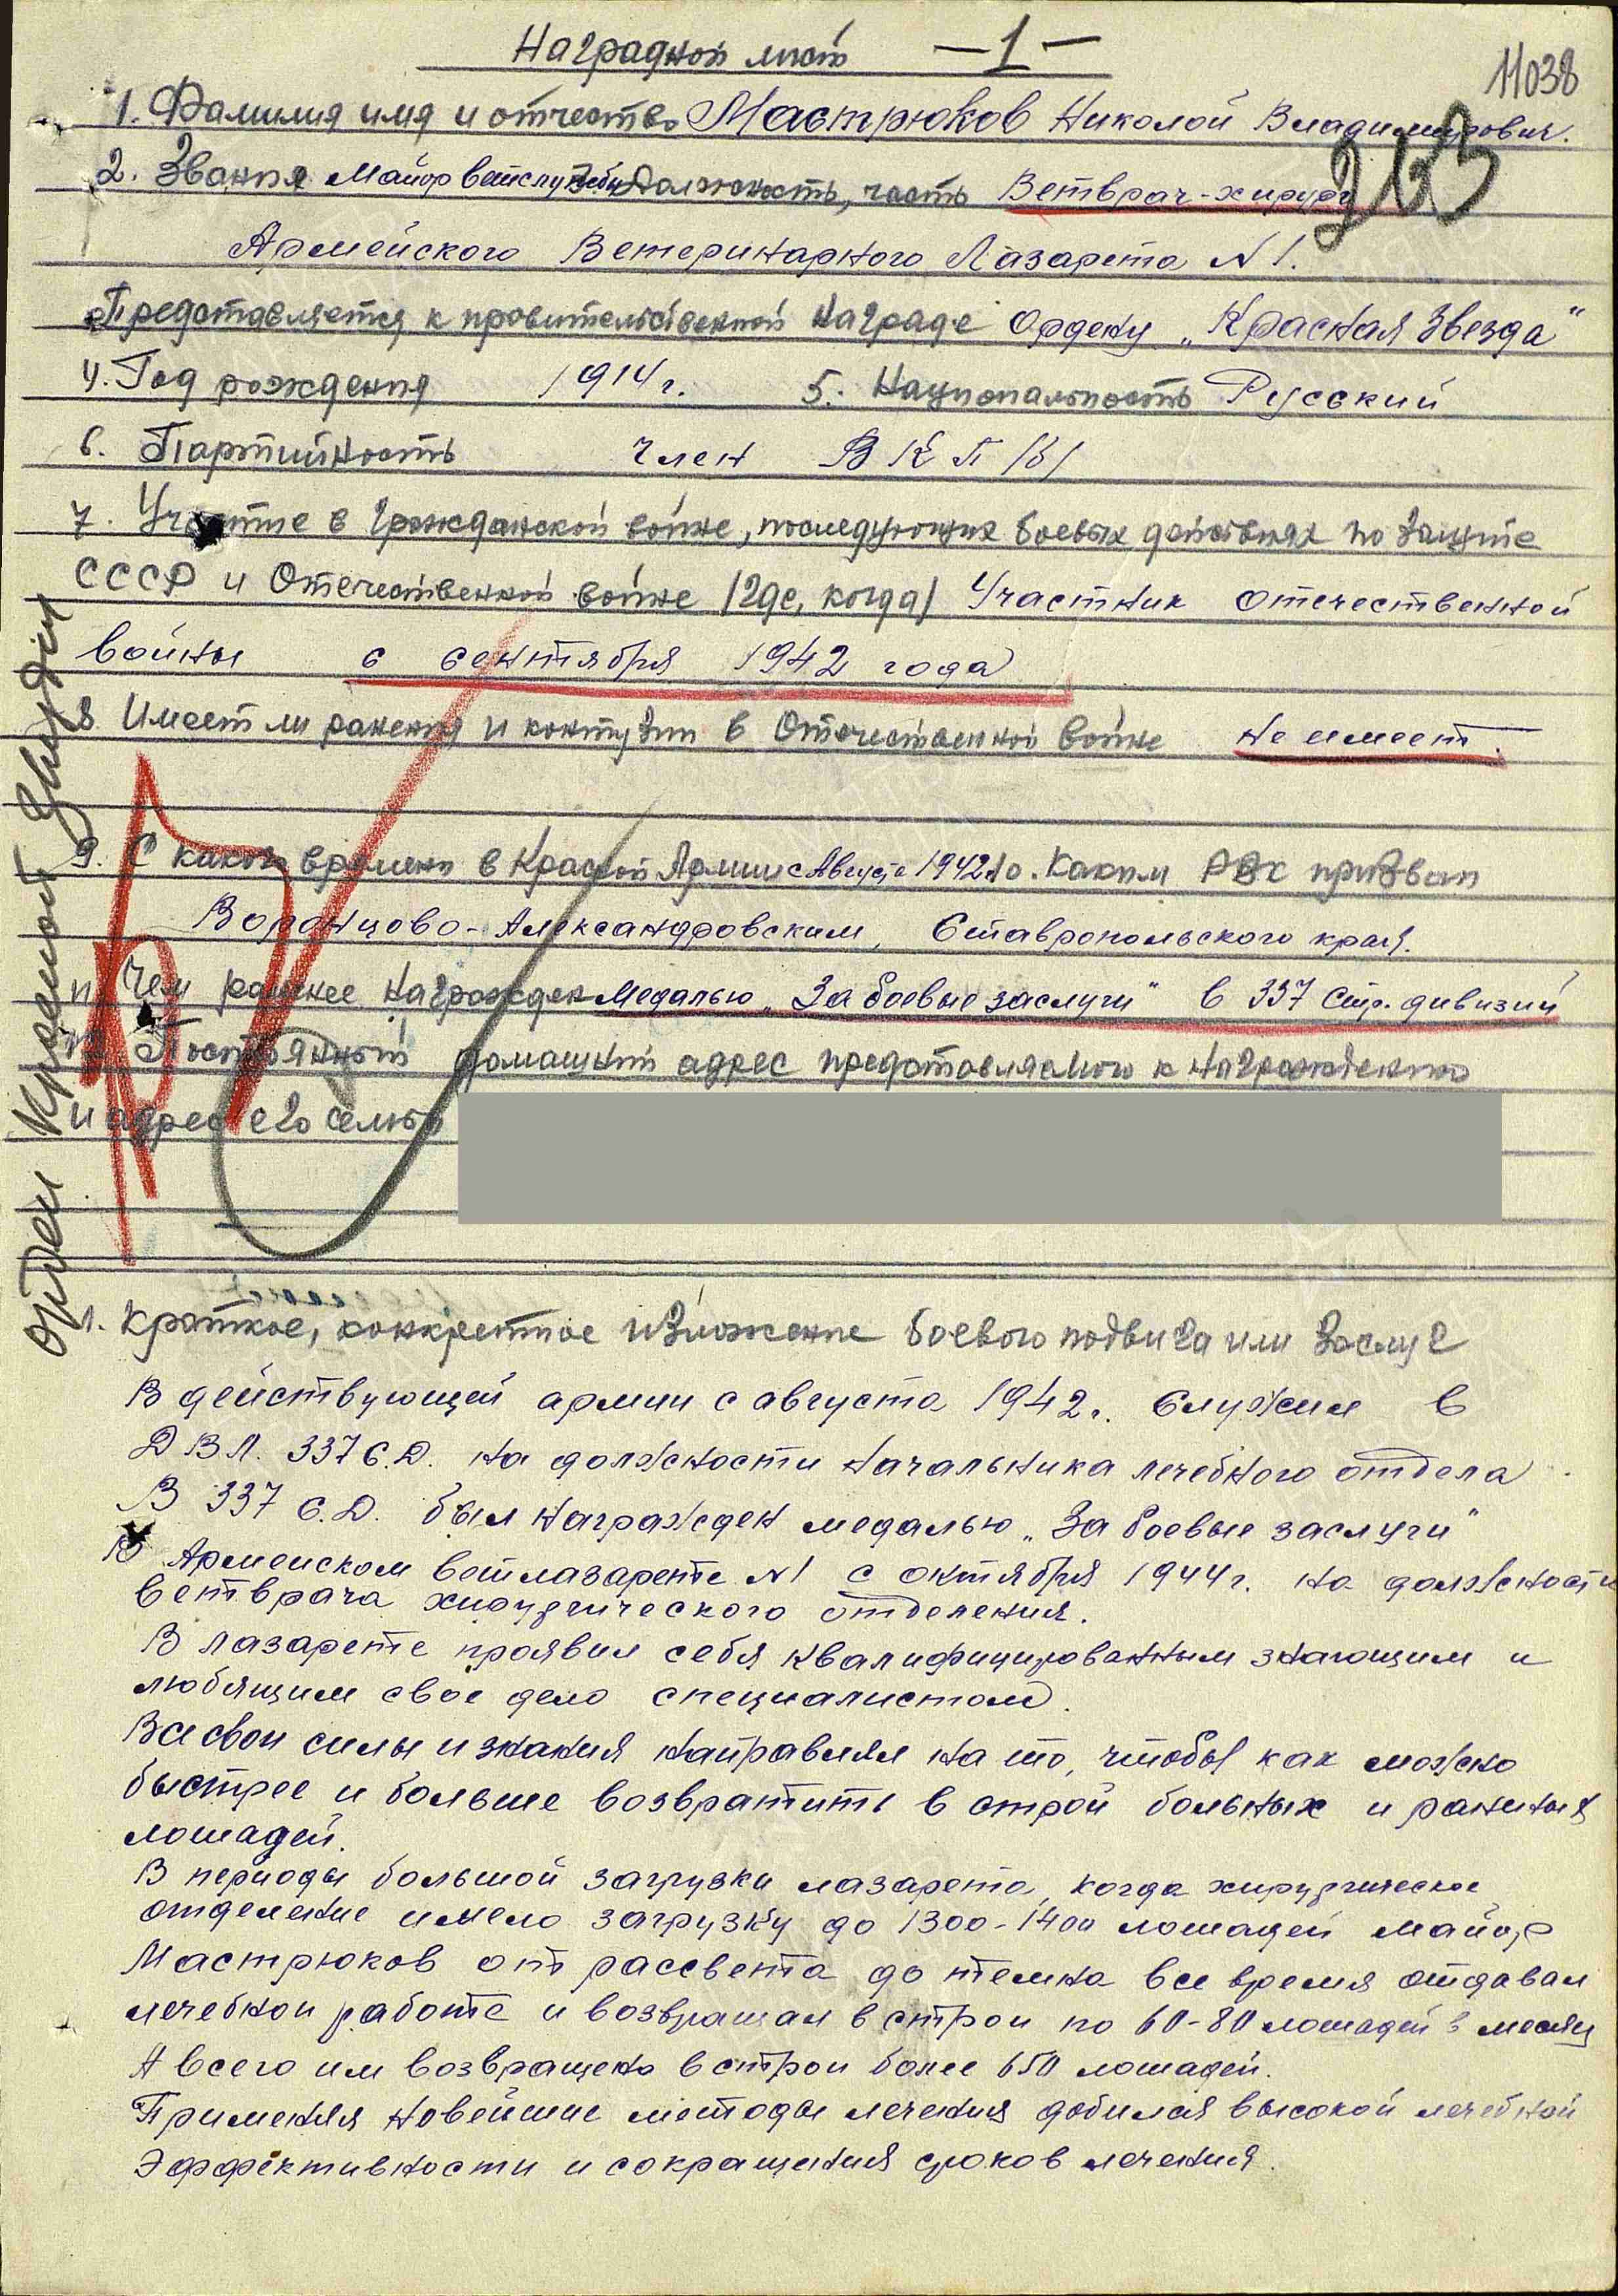 Наградной лист —1—
11038
1. Фамилия имя и отчество Мастрюков Николой Владимирович.
2. Звание Майор ветслужбы Должность, часть Ветврач-хирург
203
Армейского Ветеринарного Лазарета N 1.
Представляется к правительственной награде Ордену „Красная Звезда"
4. Год рождения 1914 г. 5. Национальность Русский
6. Партийность член ВКП/б/
7. Участие в гражданской войне, последующих боевых действиях по защите
СССР и Отечественной войне /где, когда/ Участник отечественной
войны с сентября 1942 года
8 Имеет ли ранения и контузии в Отечественной войне не имеет.
9. С какого времени в Красной Армии с Августа 1942 10. Каким РВК призван
Воронцово-Александровским, Ставропольского края.
11. Чем раннее награжден Медалью „За боевые заслуги" в 337 стр. дивизии
12. Постоянный домашний адрес представляемого к награждению
и адрес его семьи
орден Красной Звезды
1. Краткое, конкретное изложение боевого подвига или заслуг
В действующей армии с августа 1942 г. Служил в
ДВЛ. 337 С.Д. на должности начальника лечебного отдела.
В 337 С.Д. был награжден медалью „За боевые заслуги"
В Армейском ветлазарете N 1 с октября 1944 г. на должности
ветврача хирургического отделения.
В лазарете проявил себя квалифицированным знающим и
любящим свое дело специалистом.
Все свои силы и знания направлял на то, чтобы как можно
быстрее и больше возвратить в строй больных и раненых
лошадей.
В периоды большой загрузки лазарета, когда хирургическое
отделение имело загрузку до 1300-1400 лошадей майор
Мастрюков от рассвета до темна все время отдавал
лечебной работе и возвращал в строй по 60-80 лошадей в месяц
А всего им возвращено в строй более 650 лошадей.
Применяя новейшие методы лечения добился высокой лечебной
эффективности и сокращения сроков лечения.